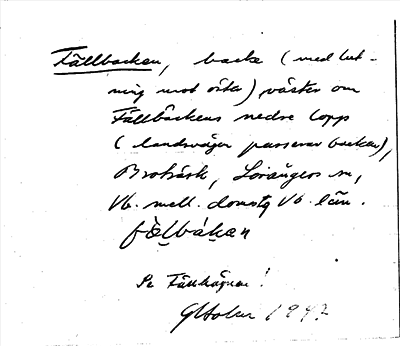 Fällbacken, backe (med lut-
ning mot öster) väster om
Fällbäckens nedre lopp
(landsvägen passerar backen),
Broträsk, Lövångers sn,
Vb. mell. domsg Vb. län.
Se Fällhägnen!
1947